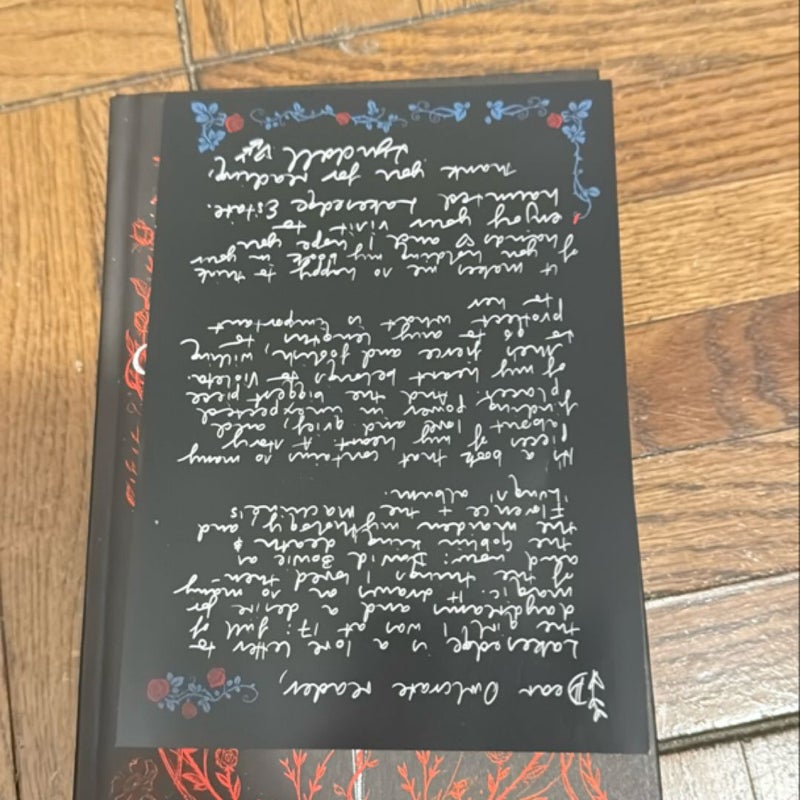 Dear Owlcrate reader,
Lakesedge is a love letter to
the girl I was at 17: full of
daydreams and a desire for
magic. It draws on so many
of the things I loved then-
and now: David Bowie as
the Goblin King, death &
the maiden mythology, and
Florence + the Machine's
'Lungs' album.
It's a book that contains so many
pieces of my heart. A story
about love and grief, and
finding power in unexpected
places. And the biggest piece
of my heart belongs to Violeta.
She's fierce and foolish, willing
to go to any lengths to
protect what is important
to her.
It makes me so happy to think
of you holding my book in your
hands ♡ and I hope you
enjoy your visit to
haunted Lakesedge Estate.
Thank you for reading,
Lyndall